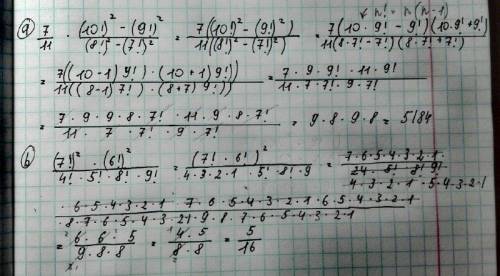 ← n! = n (n-1)
a) 7/11 · ((10!)² - (9!)²)/((8!)² - (7!)²) = 7((10!)² - (9!)²)/11((8!)² - (7!)²) = 7(10 · 9! - 9!)(10 · 9! + 9!)/11(8·7! - 7!)(8·7! + 7!)
= 7((10-1)9!) · (10+1)9!)/11((8-1)7!) · (8+7)9!) = 7 · 9 · 9! · 11 · 9!/11 · 7 · 7! · 9 · 7!
= 7 · 9 · 9 · 8 · 7! · 11 · 9 · 8 · 7!/11 · 7 · 7! · 9 · 7! = 9 · 8 · 9 · 8 = 5184
b) (7!)² · (6!)²/4! · 5! · 8! · 9! = (7! · 6!)²/4·3·2·1 · 5! · 8! · 9 = 7·6·5·4·3·2·1/24 · 5! · 8! 9!
4·3·2·1 · 5·4·3·2·1
· 6·5·4·3·2·1 · 7·6·5·4·3·2·1·6·5·4·3·2·1/8·7·6·5·4·3·21·9·8·7·6·5·4·3·2·1
= 6·6·5/9·8·8 = 4·5/8·8 = 5/16